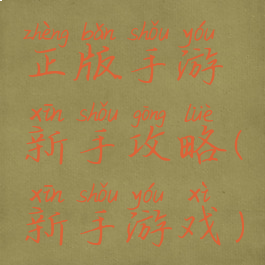 zhèng bǎn shǒu yóu
正版手游
xīn shǒu gōng lüè
新手攻略(
xīn shǒu yóu xì
新手游戏)